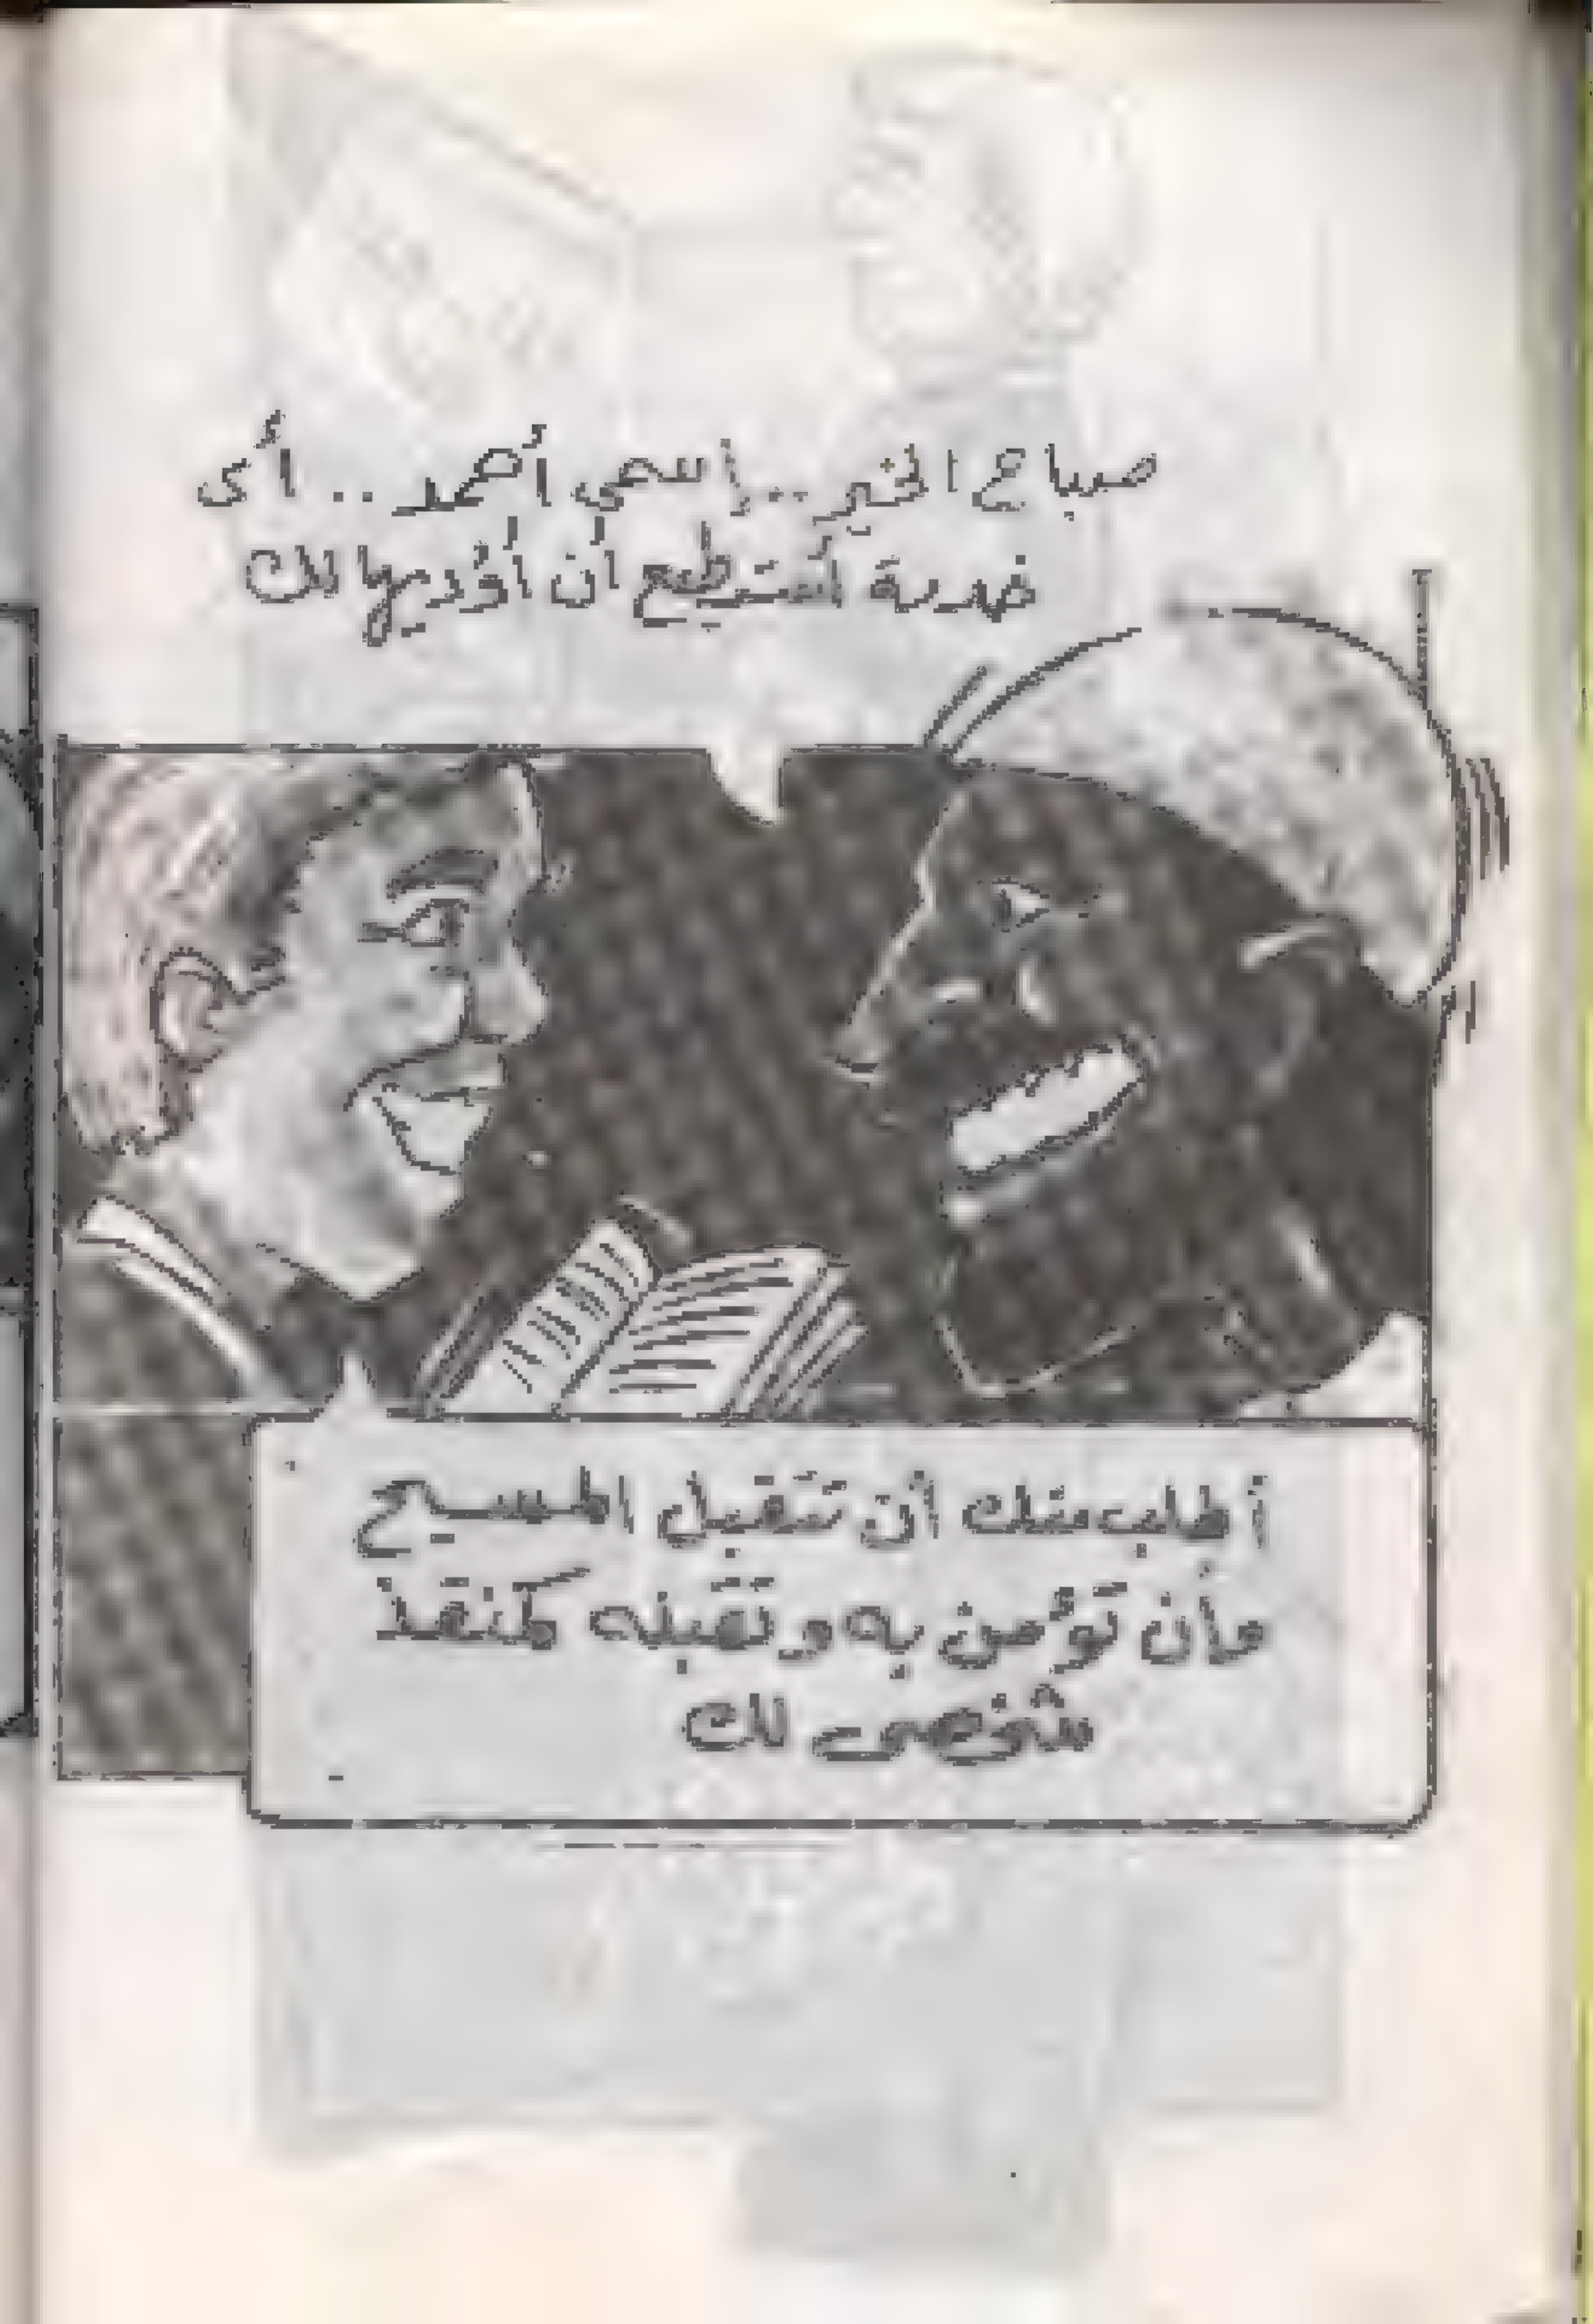 صباح الخير .. إسمى أحمد .. أى
خدمة أستطيع أن أؤديها لك
أطلب منك أن تتقبل المسيح
وأن تؤمن به وتقبله كمنقذ
شخصى لك